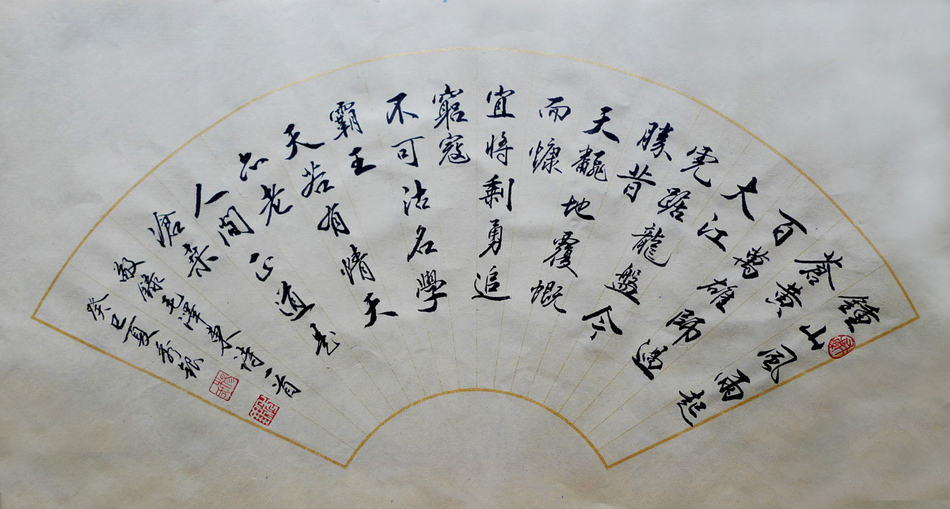 鐘山風雨起
蒼黃
百萬雄師過
大江
虎踞龍盤今
勝昔
天翻地覆慨
而慷
宜將剩勇追
窮寇
不可沽名學
霸王
天若有情天
亦老
人間正道是
滄桑
敬錄毛澤東詩一首
癸巳夏